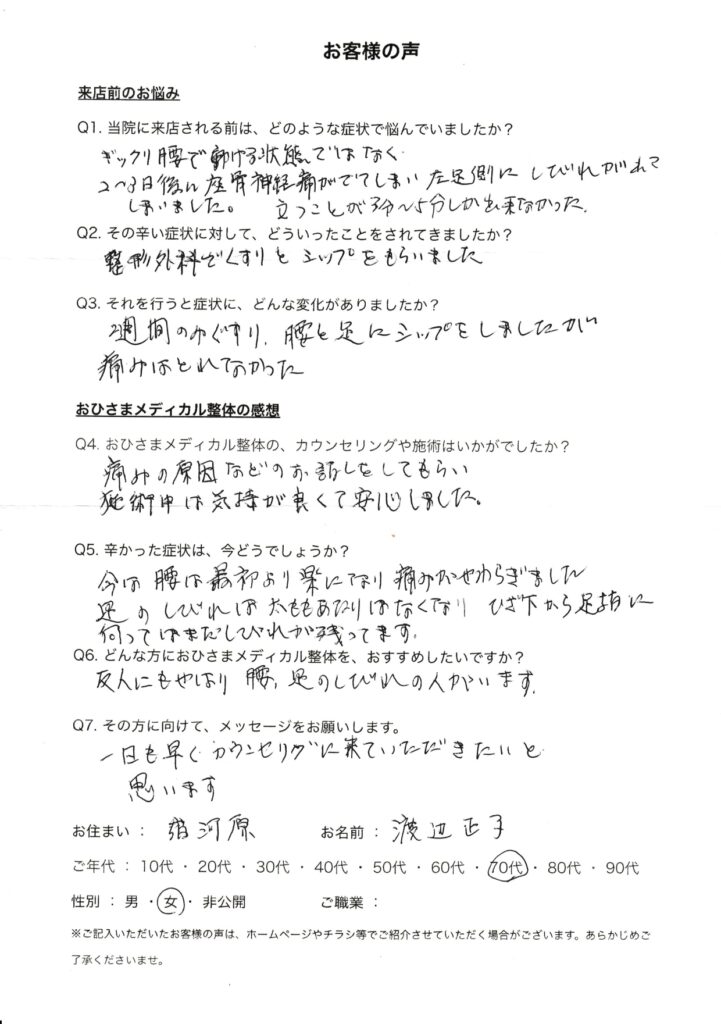 お客様の声
来店前のお悩み
Q1. 当院に来店される前は、どのような症状で悩んでいましたか？
ギックリ腰で動ける状態ではなく
2〜3日後に座骨神経痛がでてしまい 左足側に しびれがれて
しまいました。 立つことが3分〜5分しか出来なかった.
Q2. その辛い症状に対して、どういったことをされてきましたか？
整形外科でくすりと シップをもらいました
Q3. それを行うと症状に、どんな変化がありましたか？
2週間のみぐすり、腰と足にシップをしましたが
痛みはとれなかった
おひさまメディカル整体の感想
Q4. おひさまメディカル整体の、カウンセリングや施術はいかがでしたか？
痛みの原因などのお話しをしてもらい
施術中は気持が良くて安心しました。
Q5. 辛かった症状は、今どうでしょうか？
今は 腰は最初より楽になり 痛みがやわらぎました
足のしびれは太ももあたりはなくなり ひざ下から足指に
向ってはまだしびれが残ってます.
Q6. どんな方におひさまメディカル整体を、おすすめしたいですか？
友人にもやはり 腰, 足のしびれの人がいます.
Q7. その方に向けて、メッセージをお願いします。
一日も早く カウンセリングに来ていただきたいと
思います
お住まい： 河原 お名前： 渡辺正子
ご年代： 10代 ・ 20代 ・ 30代 ・ 40代 ・ 50代 ・ 60代 ・ 70代 ・ 80代 ・ 90代
性別： 男 ・ 女 ・ 非公開 ご職業：
※ご記入いただいたお客様の声は、ホームページやチラシ等でご紹介させていただく場合がございます。あらかじめご
了承くださいませ。